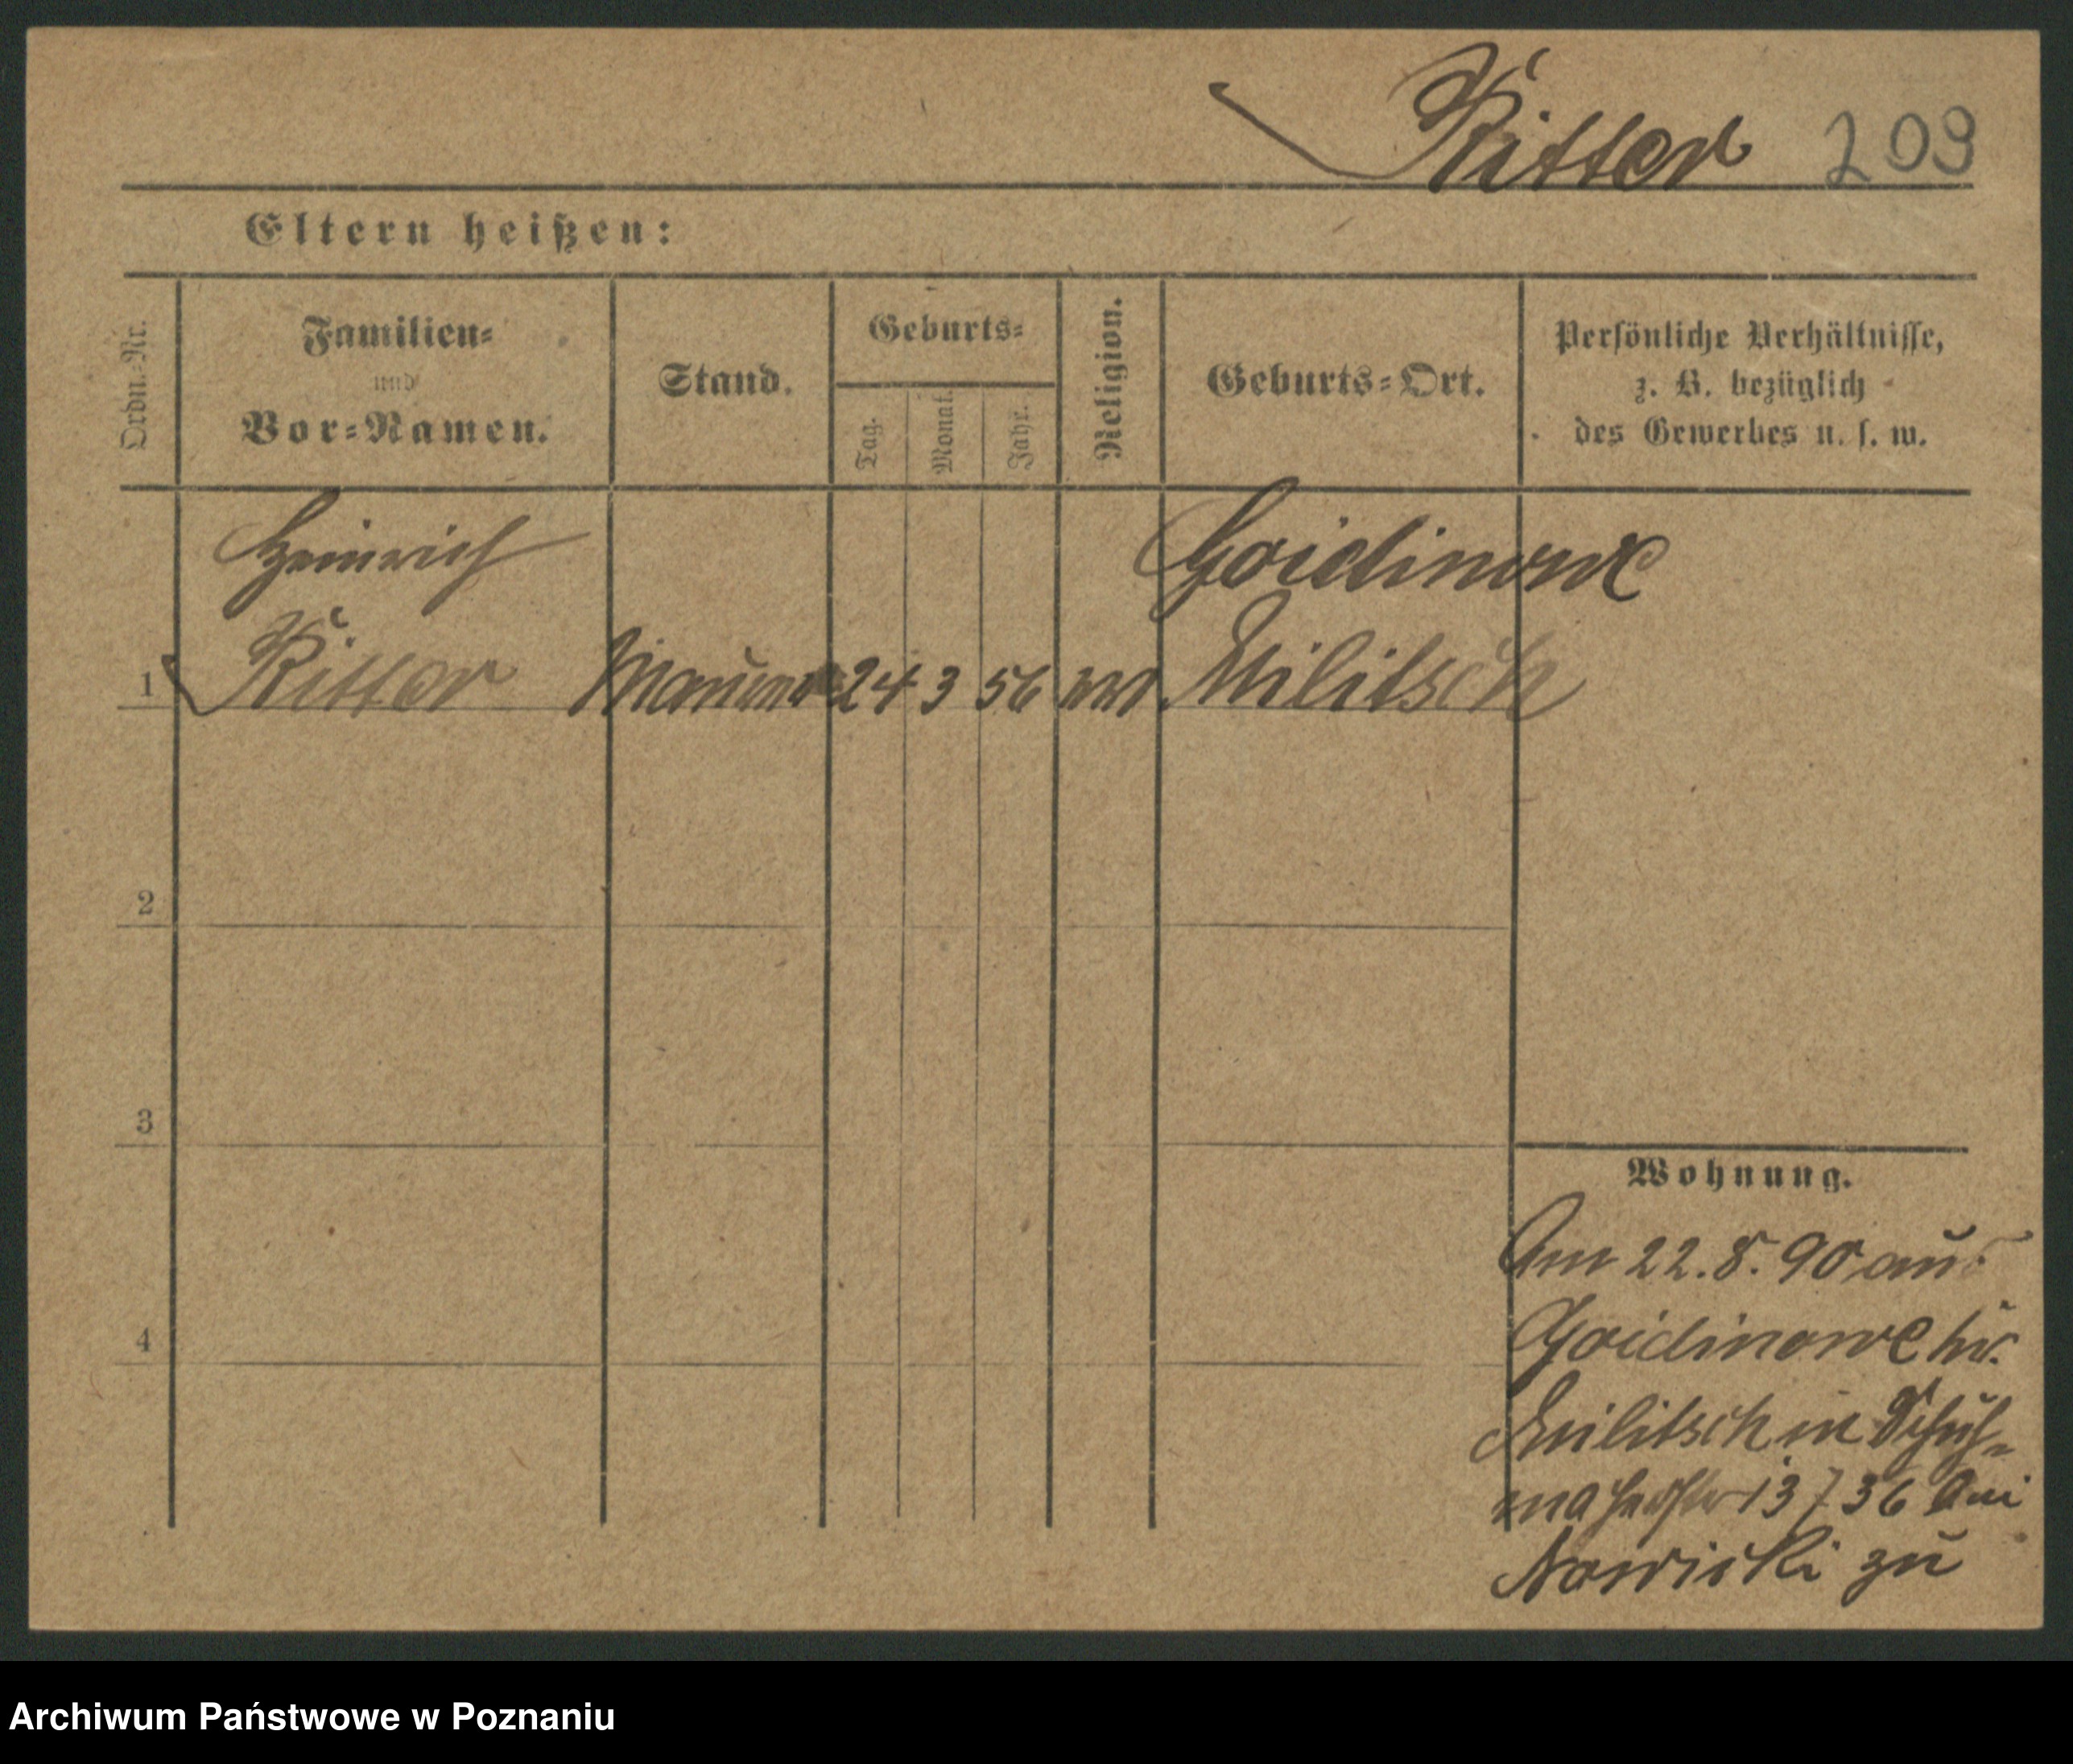 Ritter 209
Eltern heißen:
Ordn.-Nr.
Familien-
und
Vor-Namen.
Stand.
Geburts-
Tag.
Monat.
Jahr.
Religion.
Geburts-Ort.
Persönliche Verhältnisse,
z. B. bezüglich
des Gewerbes u. s. w.
Heinrich Goidinowe
1 Ritter Maurer 24 3 56 Militsch
2
3
4
Wohnung.
Am 22.8.90 aus
Goidinowe Kr.
Militsch in Schuh-
macherstr 13 / 36 bei
Nowicki zu
Archiwum Państwowe w Poznaniu